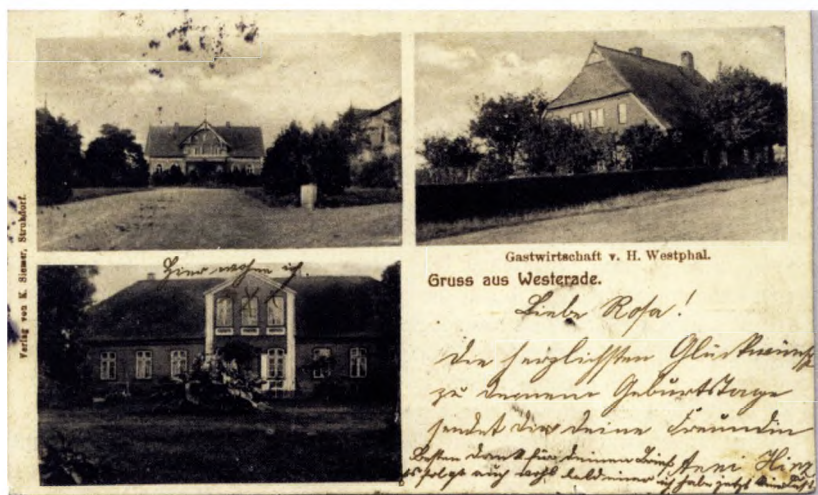 Verlag von K. Siemer, Strukdorf.
Gastwirtschaft v. H. Westphal.
Gruss aus Westerade.
Hier wohne ich.
Liebe Rosa!
Die herzlichsten Glückwünsche
zu deinem Geburtstage
sendet dir deine Freundin
Anni Hinz
Besten Dank für deinen Brief
es folgt auch wohl bald einer ich habe jetzt